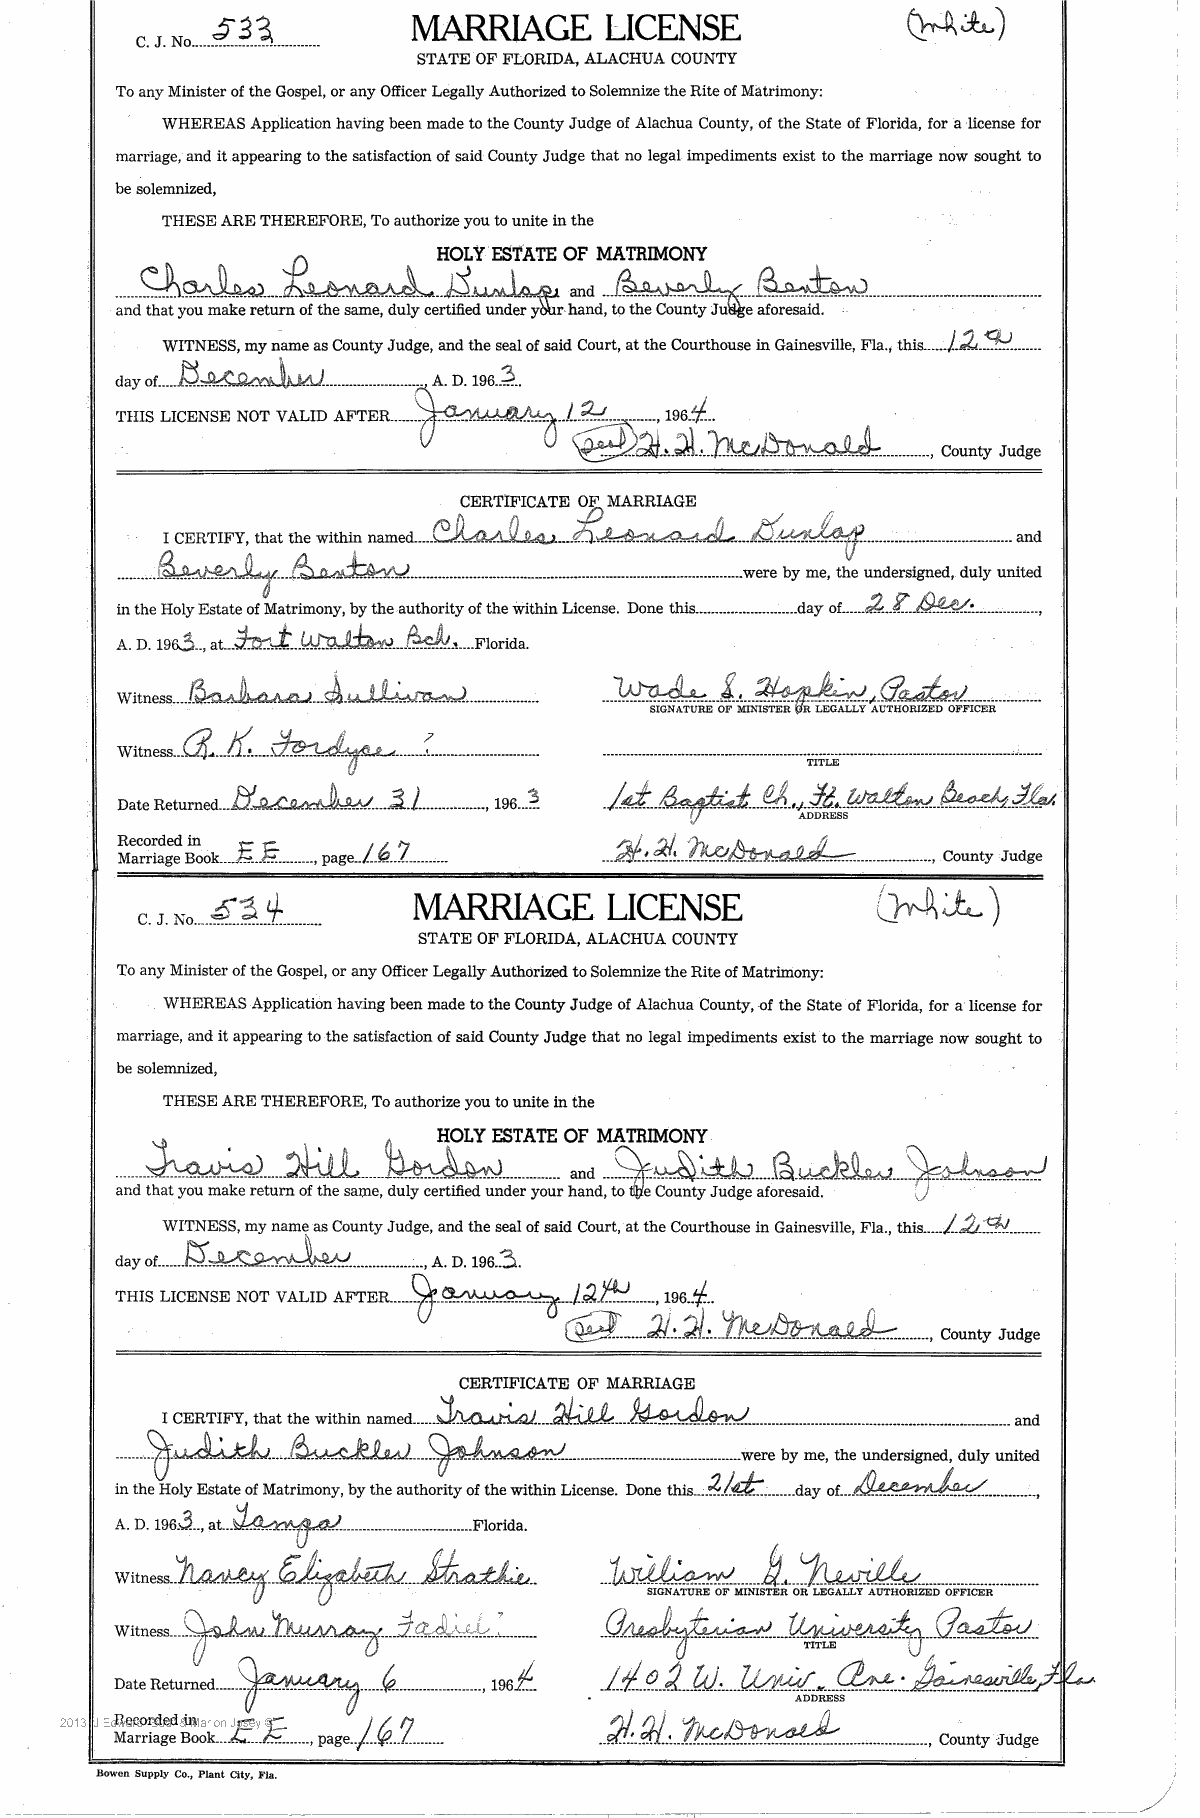 C. J. No. 533 MARRIAGE LICENSE (White)
STATE OF FLORIDA, ALACHUA COUNTY
To any Minister of the Gospel, or any Officer Legally Authorized to Solemnize the Rite of Matrimony:
WHEREAS Application having been made to the County Judge of Alachua County, of the State of Florida, for a license for
marriage, and it appearing to the satisfaction of said County Judge that no legal impediments exist to the marriage now sought to
be solemnized,
THESE ARE THEREFORE, To authorize you to unite in the
HOLY ESTATE OF MATRIMONY
Charles Leonard Dunlap and Beverly Benton
and that you make return of the same, duly certified under your hand, to the County Judge aforesaid.
WITNESS, my name as County Judge, and the seal of said Court, at the Courthouse in Gainesville, Fla., this 12th
day of December, A. D. 1963.
THIS LICENSE NOT VALID AFTER January 12, 1964.
(Seal) H. H. McDonald, County Judge
CERTIFICATE OF MARRIAGE
I CERTIFY, that the within named Charles Leonard Dunlap and
Beverly Benton were by me, the undersigned, duly united
in the Holy Estate of Matrimony, by the authority of the within License. Done this day of 28 Dec.,
A. D. 1963, at Fort Walton Bch. Florida.
Witness Barbara Sullivan Wade S. Hopkin, Pastor
SIGNATURE OF MINISTER OR LEGALLY AUTHORIZED OFFICER
Witness R. K. Fordyce ?
TITLE
Date Returned December 31, 1963 1st Baptist Ch., Ft. Walton Beach, Fla.
ADDRESS
Recorded in
Marriage Book EE, page 167 H. H. McDonald, County Judge
C. J. No. 534 MARRIAGE LICENSE (White)
STATE OF FLORIDA, ALACHUA COUNTY
To any Minister of the Gospel, or any Officer Legally Authorized to Solemnize the Rite of Matrimony:
WHEREAS Application having been made to the County Judge of Alachua County, of the State of Florida, for a license for
marriage, and it appearing to the satisfaction of said County Judge that no legal impediments exist to the marriage now sought to
be solemnized,
THESE ARE THEREFORE, To authorize you to unite in the
HOLY ESTATE OF MATRIMONY
Travis Hill Gordon and Judith Buckler Johnson
and that you make return of the same, duly certified under your hand, to the County Judge aforesaid.
WITNESS, my name as County Judge, and the seal of said Court, at the Courthouse in Gainesville, Fla., this 12th
day of December, A. D. 1963.
THIS LICENSE NOT VALID AFTER January 12th, 1964.
(Seal) H. H. McDonald, County Judge
CERTIFICATE OF MARRIAGE
I CERTIFY, that the within named Travis Hill Gordon and
Judith Buckler Johnson were by me, the undersigned, duly united
in the Holy Estate of Matrimony, by the authority of the within License. Done this 21st day of December,
A. D. 1963, at Tampa Florida.
Witness Nancy Elizabeth Strathie William G. Neville
SIGNATURE OF MINISTER OR LEGALLY AUTHORIZED OFFICER
Witness John Murray ? Presbyterian University Pastor
TITLE
Date Returned January 6, 1964 1402 W. Univ. Ave. Gainesville, Fla.
ADDRESS
2013 J Edward Recorded in Marion Josey ©
Marriage Book EE, page 167 H. H. McDonald, County Judge
Bowen Supply Co., Plant City, Fla.